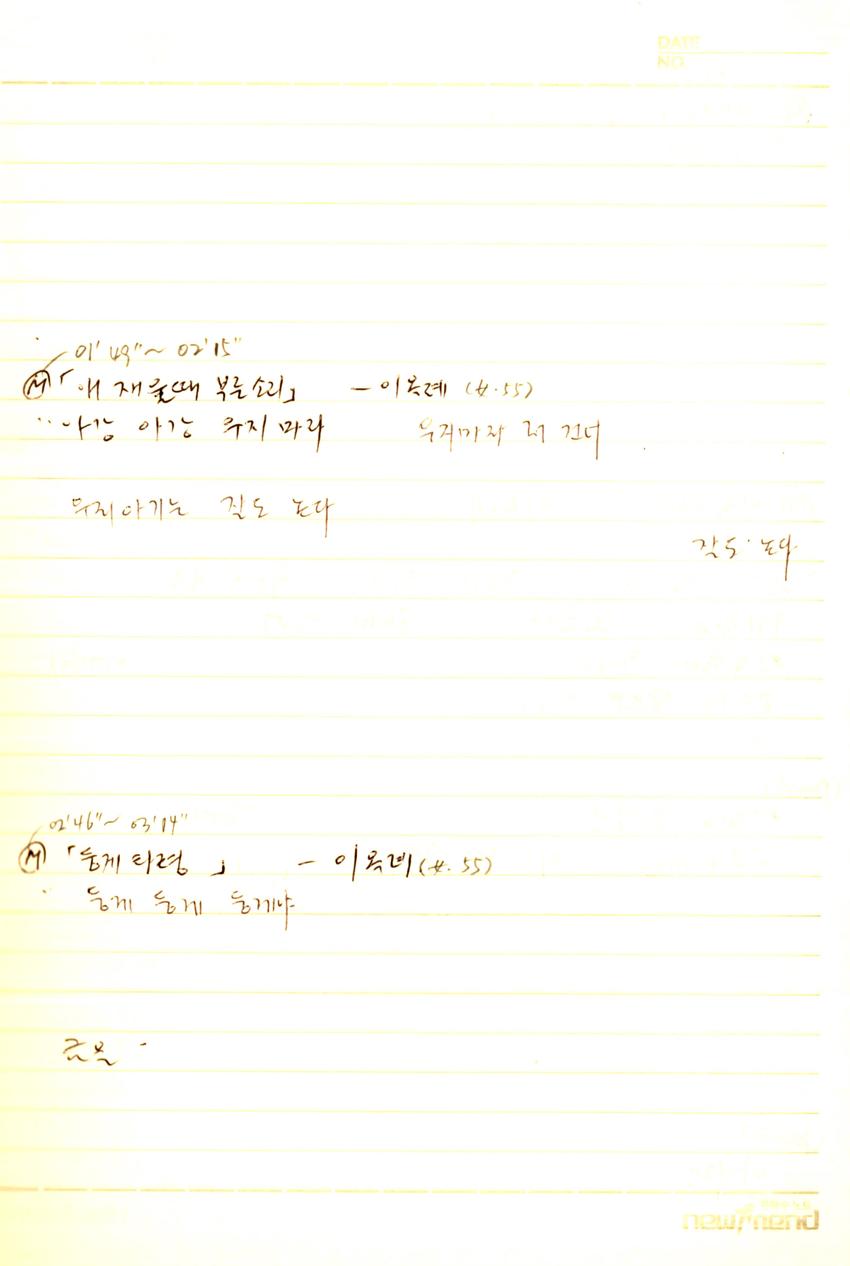 DATE
NO
01' 49"~ 02'15"
Ⓜ 「애 재울때 부른소리」 - 이옥례 (女.55)
아강 아강 우지마라 우지마자 저 건너
우지아기는 질도 논다
잠도 논다
02'46"~ 03'14"
Ⓜ 「둥게 타령 」 - 이옥례 (女. 55)
둥게 둥게 둥게야